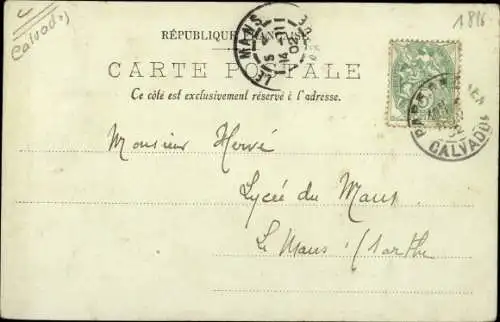 Calvados
1816
RÉPUBLIQUE FRANÇAISE
LE MANS
CARTE POSTALE
Ce côté est exclusivement réservé à l'adresse.
CALVADOS
Monsieur Hervé
Lycée du Mans
Le Mans (Sarthe